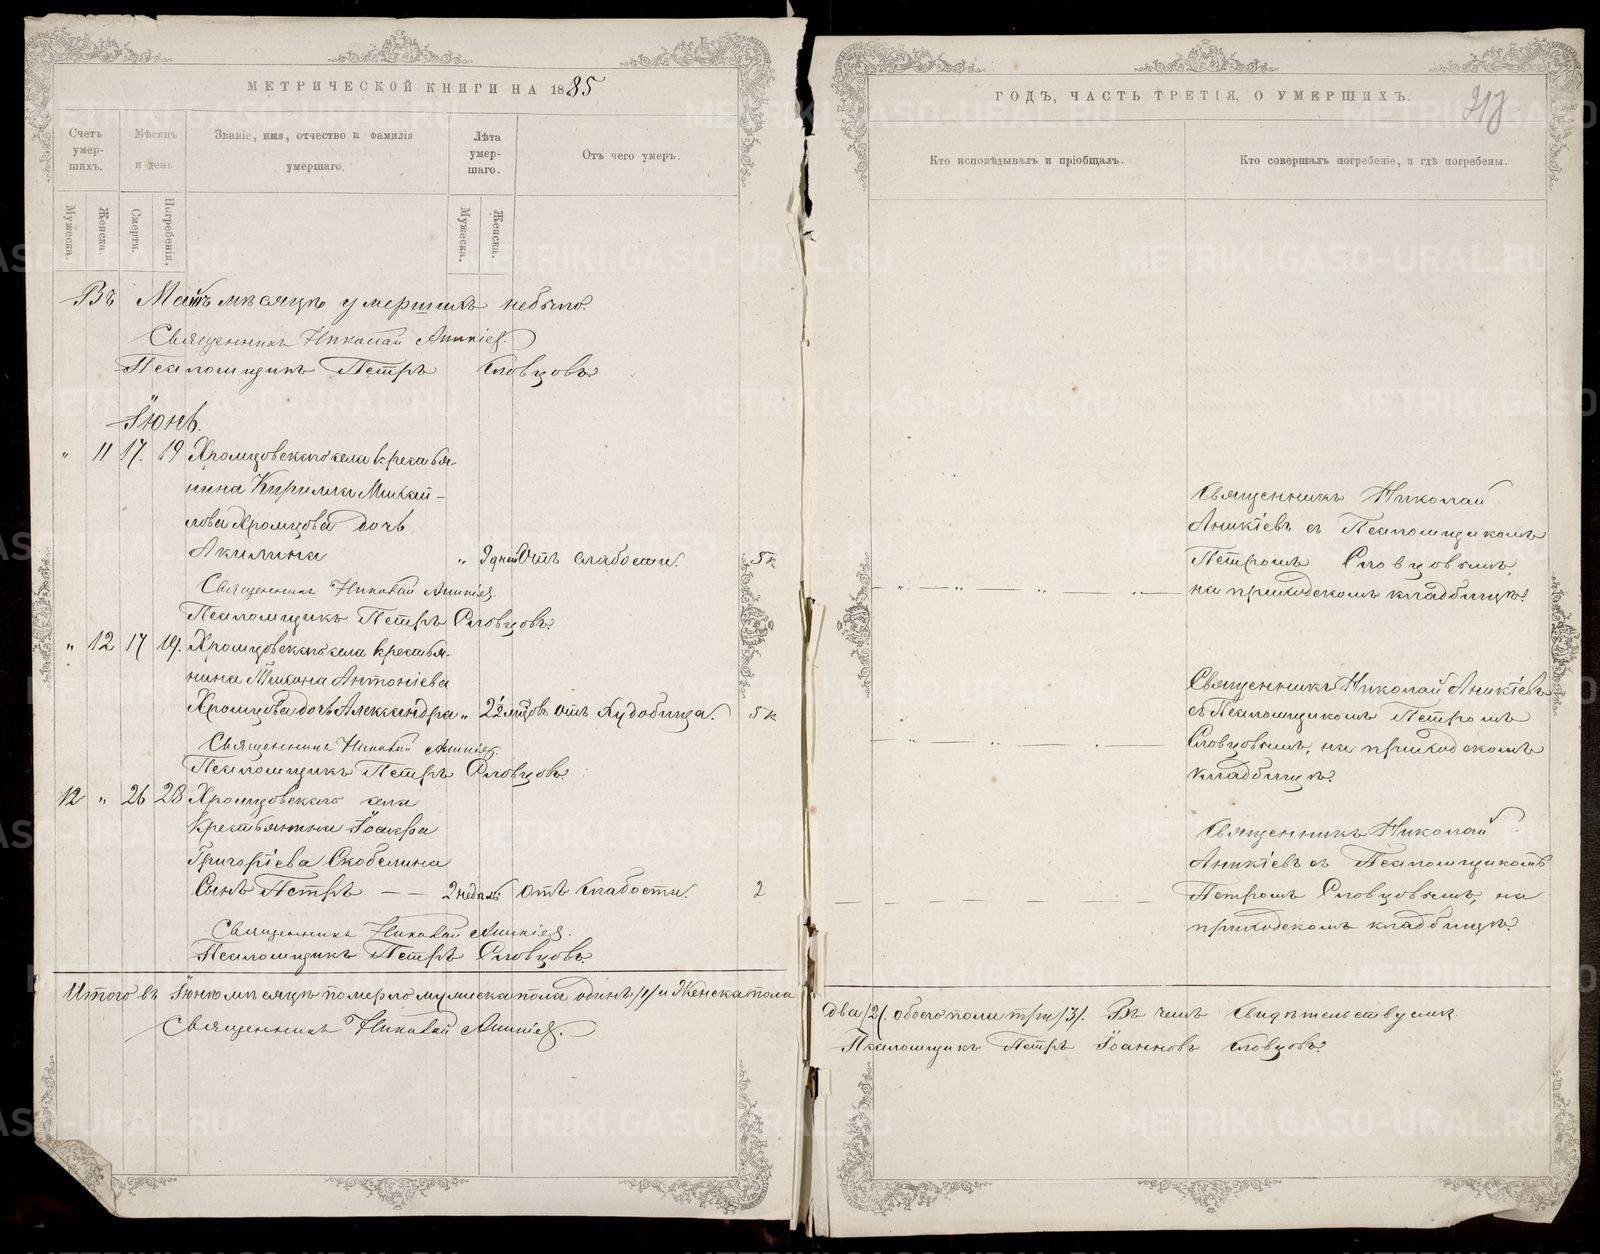 МЕТРИЧЕСКОЙ КНИГИ НА 1885
Счетъ умер- шихъ.
Мѣсяцъ и день
Званіе, имя, отчество и фамилія умершаго.
Лѣта умер- шаго.
Отъ чего умеръ.
Мужеска.
Женска.
Смерти.
Погребенія.
Мужеска.
Женска.
Въ Маѣ мѣсяцѣ умершихъ небыло.
Священникъ Николай Аникіев.
Псаломщикъ Петръ Словцовъ.
Іюнь.
" 11 17. 19 Хромцовскаго села крестья-
нина Кирилла Михай-
лова Хромцова дочь
Акилина " 2 дней Отъ слабости. 5 к
Священникъ Николай Аникіев.
Псаломщикъ Петръ Словцовъ.
" 12 17 19. Хромцовскаго села крестья-
нина Тихона Антоніева
Хромцова дочь Александра " 2½ мцовъ отъ худобища. 5 к
Священникъ Николай Аникіев
Псаломщикъ Петръ Словцовъ.
12 " 26 28 Хромцовскаго села
крестьянина Іоакфа
Григоріева Скобелина
Сынъ Петръ — — 2 недѣль Отъ слабости. 2
Священникъ Николай Аникіев.
Псаломщикъ Петръ Словцовъ.
Итого въ Іюнѣ мѣсяцѣ померло мужеска пола одинъ /1/ и Женска пола
Священникъ Николай Аникіев.
ГОДЪ, ЧАСТЬ ТРЕТІЯ, О УМЕРШИХЪ.
Кто исповѣдывалъ и пріобщалъ.
Кто совершалъ погребеніе, и гдѣ погребены.
Священникъ Николай
Аникіевъ съ Псаломщикомъ
Петромъ Словцовымъ,
на приходскомъ кладбищѣ.
Священникъ Николай Аникіевъ
съ Псаломщикомъ Петромъ
Словцовымъ, на приходскомъ
кладбищѣ.
Священникъ Николай
Аникіевъ съ Псаломщикомъ
Петромъ Словцовымъ, на
приходскомъ кладбищѣ.
два /2/. обоего пола три /3/. Въ чемъ Свидѣтельствуемъ
Псаломщикъ Петръ Іоанновъ Словцовъ.
METRIKI.GASO-URAL.RU